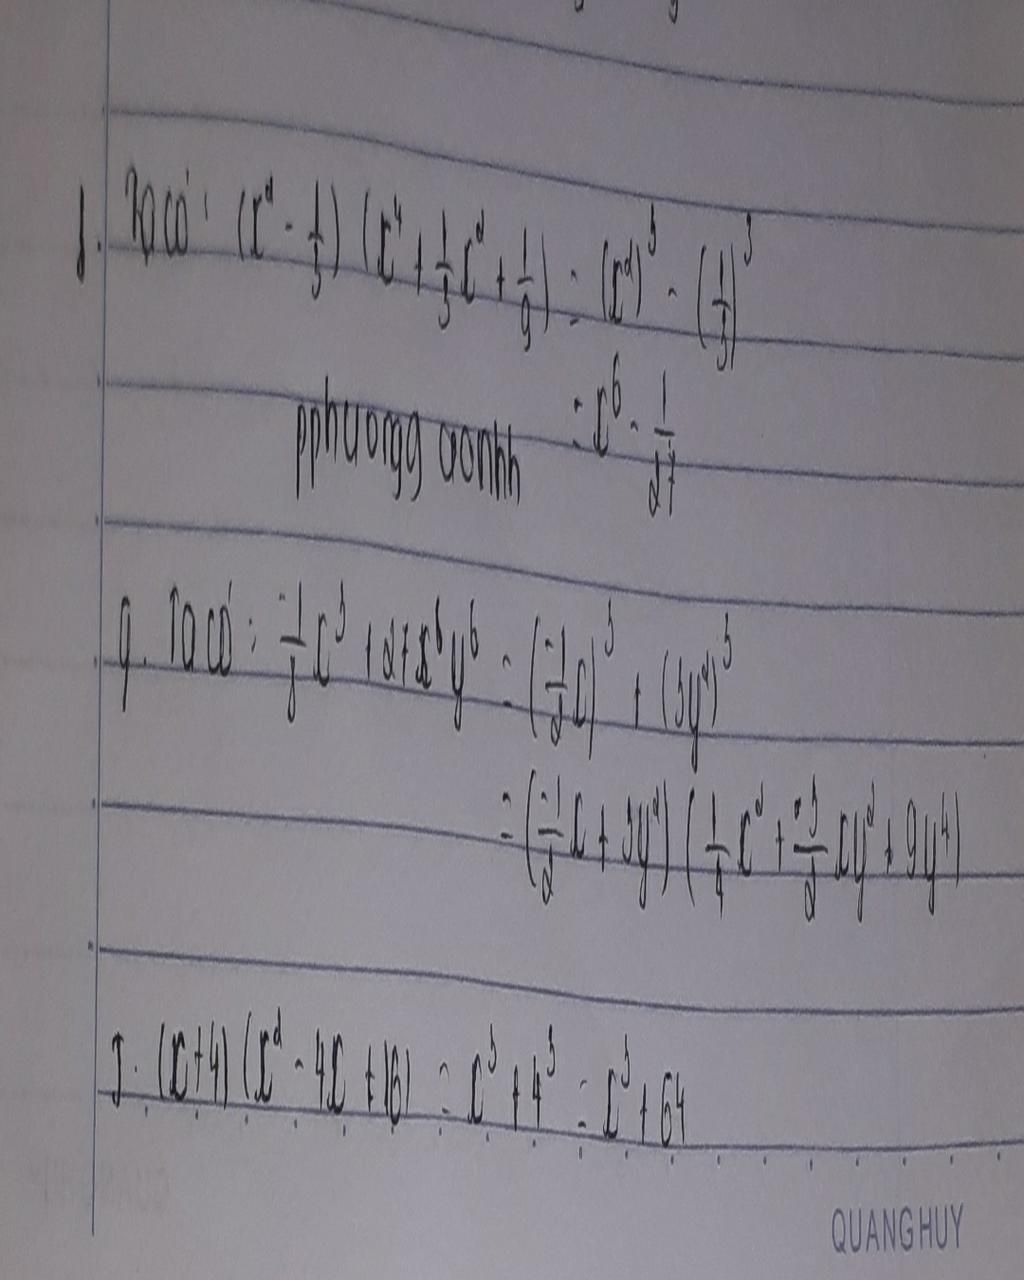 1. Ta có: (x² - 1/3) (x⁴ + 1/3 x² + 1/9) = (x²)³ - (1/3)³
= x⁶ - 1/27
pphuongg aonhh
9. Ta có: -1/8 x³ + 27x⁶y⁶ = (-1/2 x)³ + (3y²)³
= (-1/2 x + 3y²) (1/4 x² + -3/2 xy² + 9y⁴)
1. (x+4) (x² - 4x + 16) = x³ + 4³ = x³ + 64
QUANG HUY